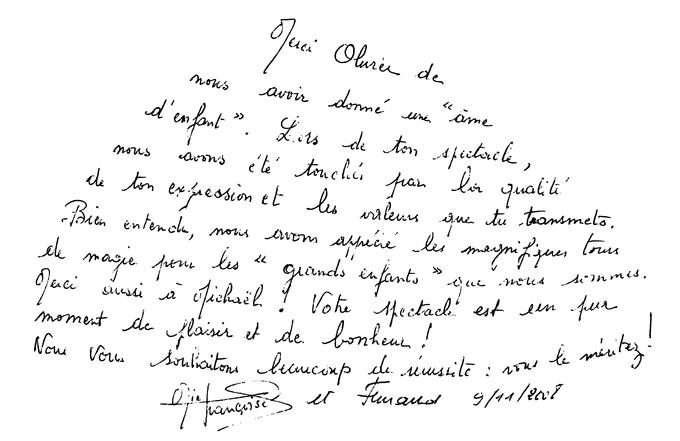 Merci Olivier de
nous avoir donné une "âme
d'enfant". Lors de ton spectacle,
nous avons été touchés par la qualité
de ton expression et les valeurs que tu transmets.
Bien entendu, nous avons apprécié les magnifiques tours
de magie pour les "grands enfants" que nous sommes.
Merci aussi à Michaël ! Votre spectacle est un pur
moment de plaisir et de bonheur !
Nous vous souhaitons beaucoup de réussite : vous le méritez !
françoise et Fernand 9/11/2008